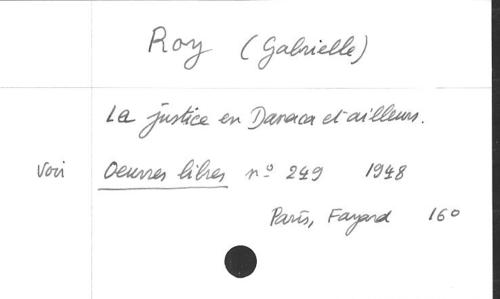 Roy (Gabrielle)
La justice en Danaca et ailleurs.
Voir Oeuvres libres nº 249 1948
Paris, Fayard 160